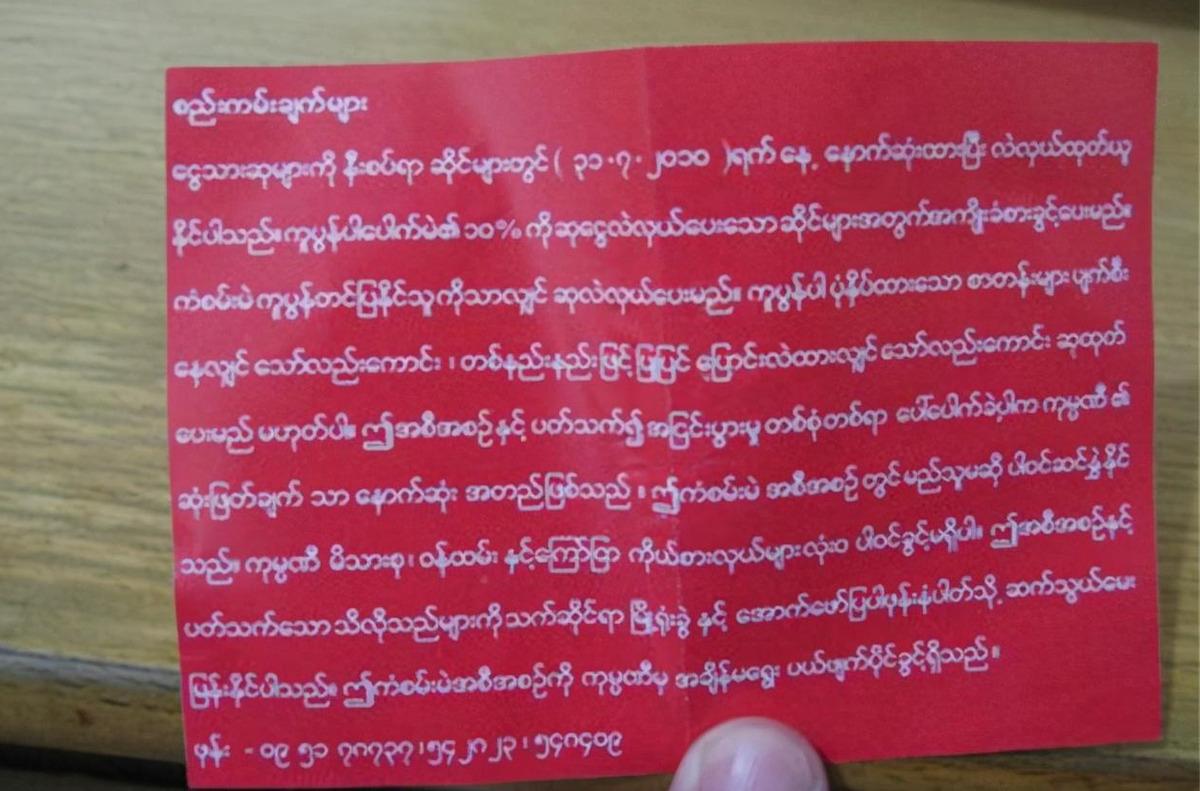 စည်းကမ်းချက်များ
ငွေသားဆုများကို နီးစပ်ရာ ဆိုင်များတွင် ( ၃၁-၇-၂၀၁၀ )ရက် နေ့ နောက်ဆုံးထားပြီး လဲလှယ်ထုတ်ယူ
နိုင်ပါသည်။ ကူပွန်ပါပေါက်မဲ၏ ၁၀% ကို ဆုငွေလဲလှယ်ပေးသော ဆိုင်များအတွက်အကျိုးခံစားခွင့်ပေးမည်။
ကံစမ်းမဲ ကူပွန်တင်ပြနိုင်သူကိုသာလျှင် ဆုလဲလှယ်ပေးမည်။ ကူပွန်ပါ ပုံနှိပ်ထားသော စာတန်းများ ပျက်စီး
နေလျှင် သော်လည်းကောင်း ၊ တစ်နည်းနည်းဖြင့် ပြုပြင် ပြောင်းလဲထားလျှင် သော်လည်းကောင်း ဆုထုတ်
ပေးမည် မဟုတ်ပါ။ ဤအစီအစဉ်နှင့် ပတ်သက်၍ အငြင်းပွားမှု တစ်စုံတစ်ရာ ပေါ်ပေါက်ခဲ့ပါက ကုမ္ပဏီ ၏
ဆုံးဖြတ်ချက် သာ နောက်ဆုံး အတည်ဖြစ်သည် ။ ဤကံစမ်းမဲ အစီအစဉ် တွင် မည်သူမဆို ပါဝင်ဆင်နွှဲနိုင်
သည်။ ကုမ္ပဏီ မိသားစု၊ ဝန်ထမ်း နှင့်ကြော်ငြာ ကိုယ်စားလှယ်များ လုံးဝ ပါဝင်ခွင့်မရှိပါ။ ဤအစီအစဉ်နှင့်
ပတ်သက်သော သိလိုသည်များကို သက်ဆိုင်ရာ မြို့ရုံးခွဲ နှင့် အောက်ဖော်ပြပါဖုန်းနံပါတ်သို့ ဆက်သွယ်မေး
မြန်းနိုင်ပါသည်။ ဤကံစမ်းမဲအစီအစဉ်ကို ကုမ္ပဏီမှ အချိန်မရွေး ပယ်ဖျက်ပိုင်ခွင့်ရှိသည် ။
ဖုန်း - ၀၉ ၅၁ ၇၈၇၃၇ ၊ ၅၄၂၈၂၃ ၊ ၅၄၈၄၀၉